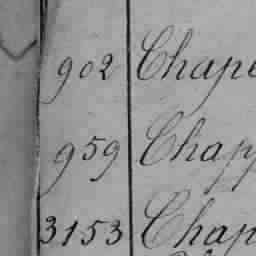 902 Chape
959 Chapp
3153 Chap